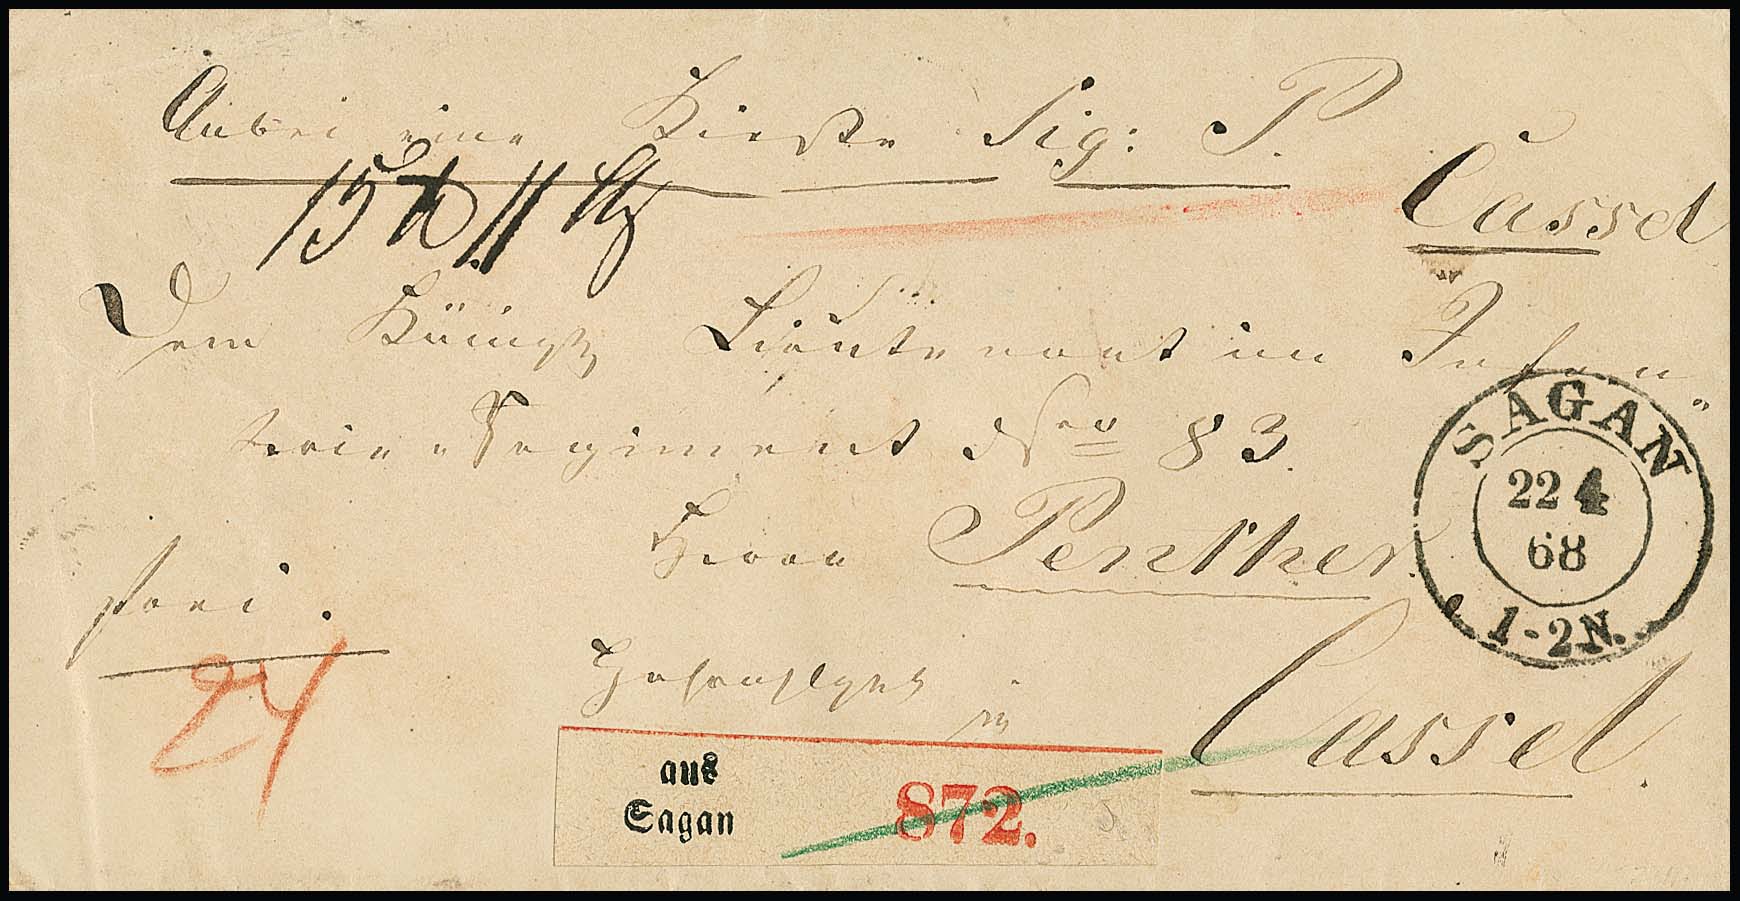 Anbei eine Kiste Sig: P.
Cassel
15 ℔ 11
Dem Königl Lieutenant im Infan„
terie-Regiment No 83.
Herrn Penther.
frei.
24
in
Cassel.
SAGAN
22 4
68
1-2N.
aus
Sagan
872.